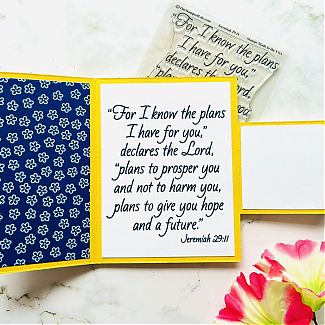 "For I know the plans
I have for you,"
declares the Lord,
"plans to prosper you
and not to harm you,
plans to give you hope
and a future."
Jeremiah 29:11
Jeremiah 29:11
"For I know the plans
I have for you,"
declares the Lord,